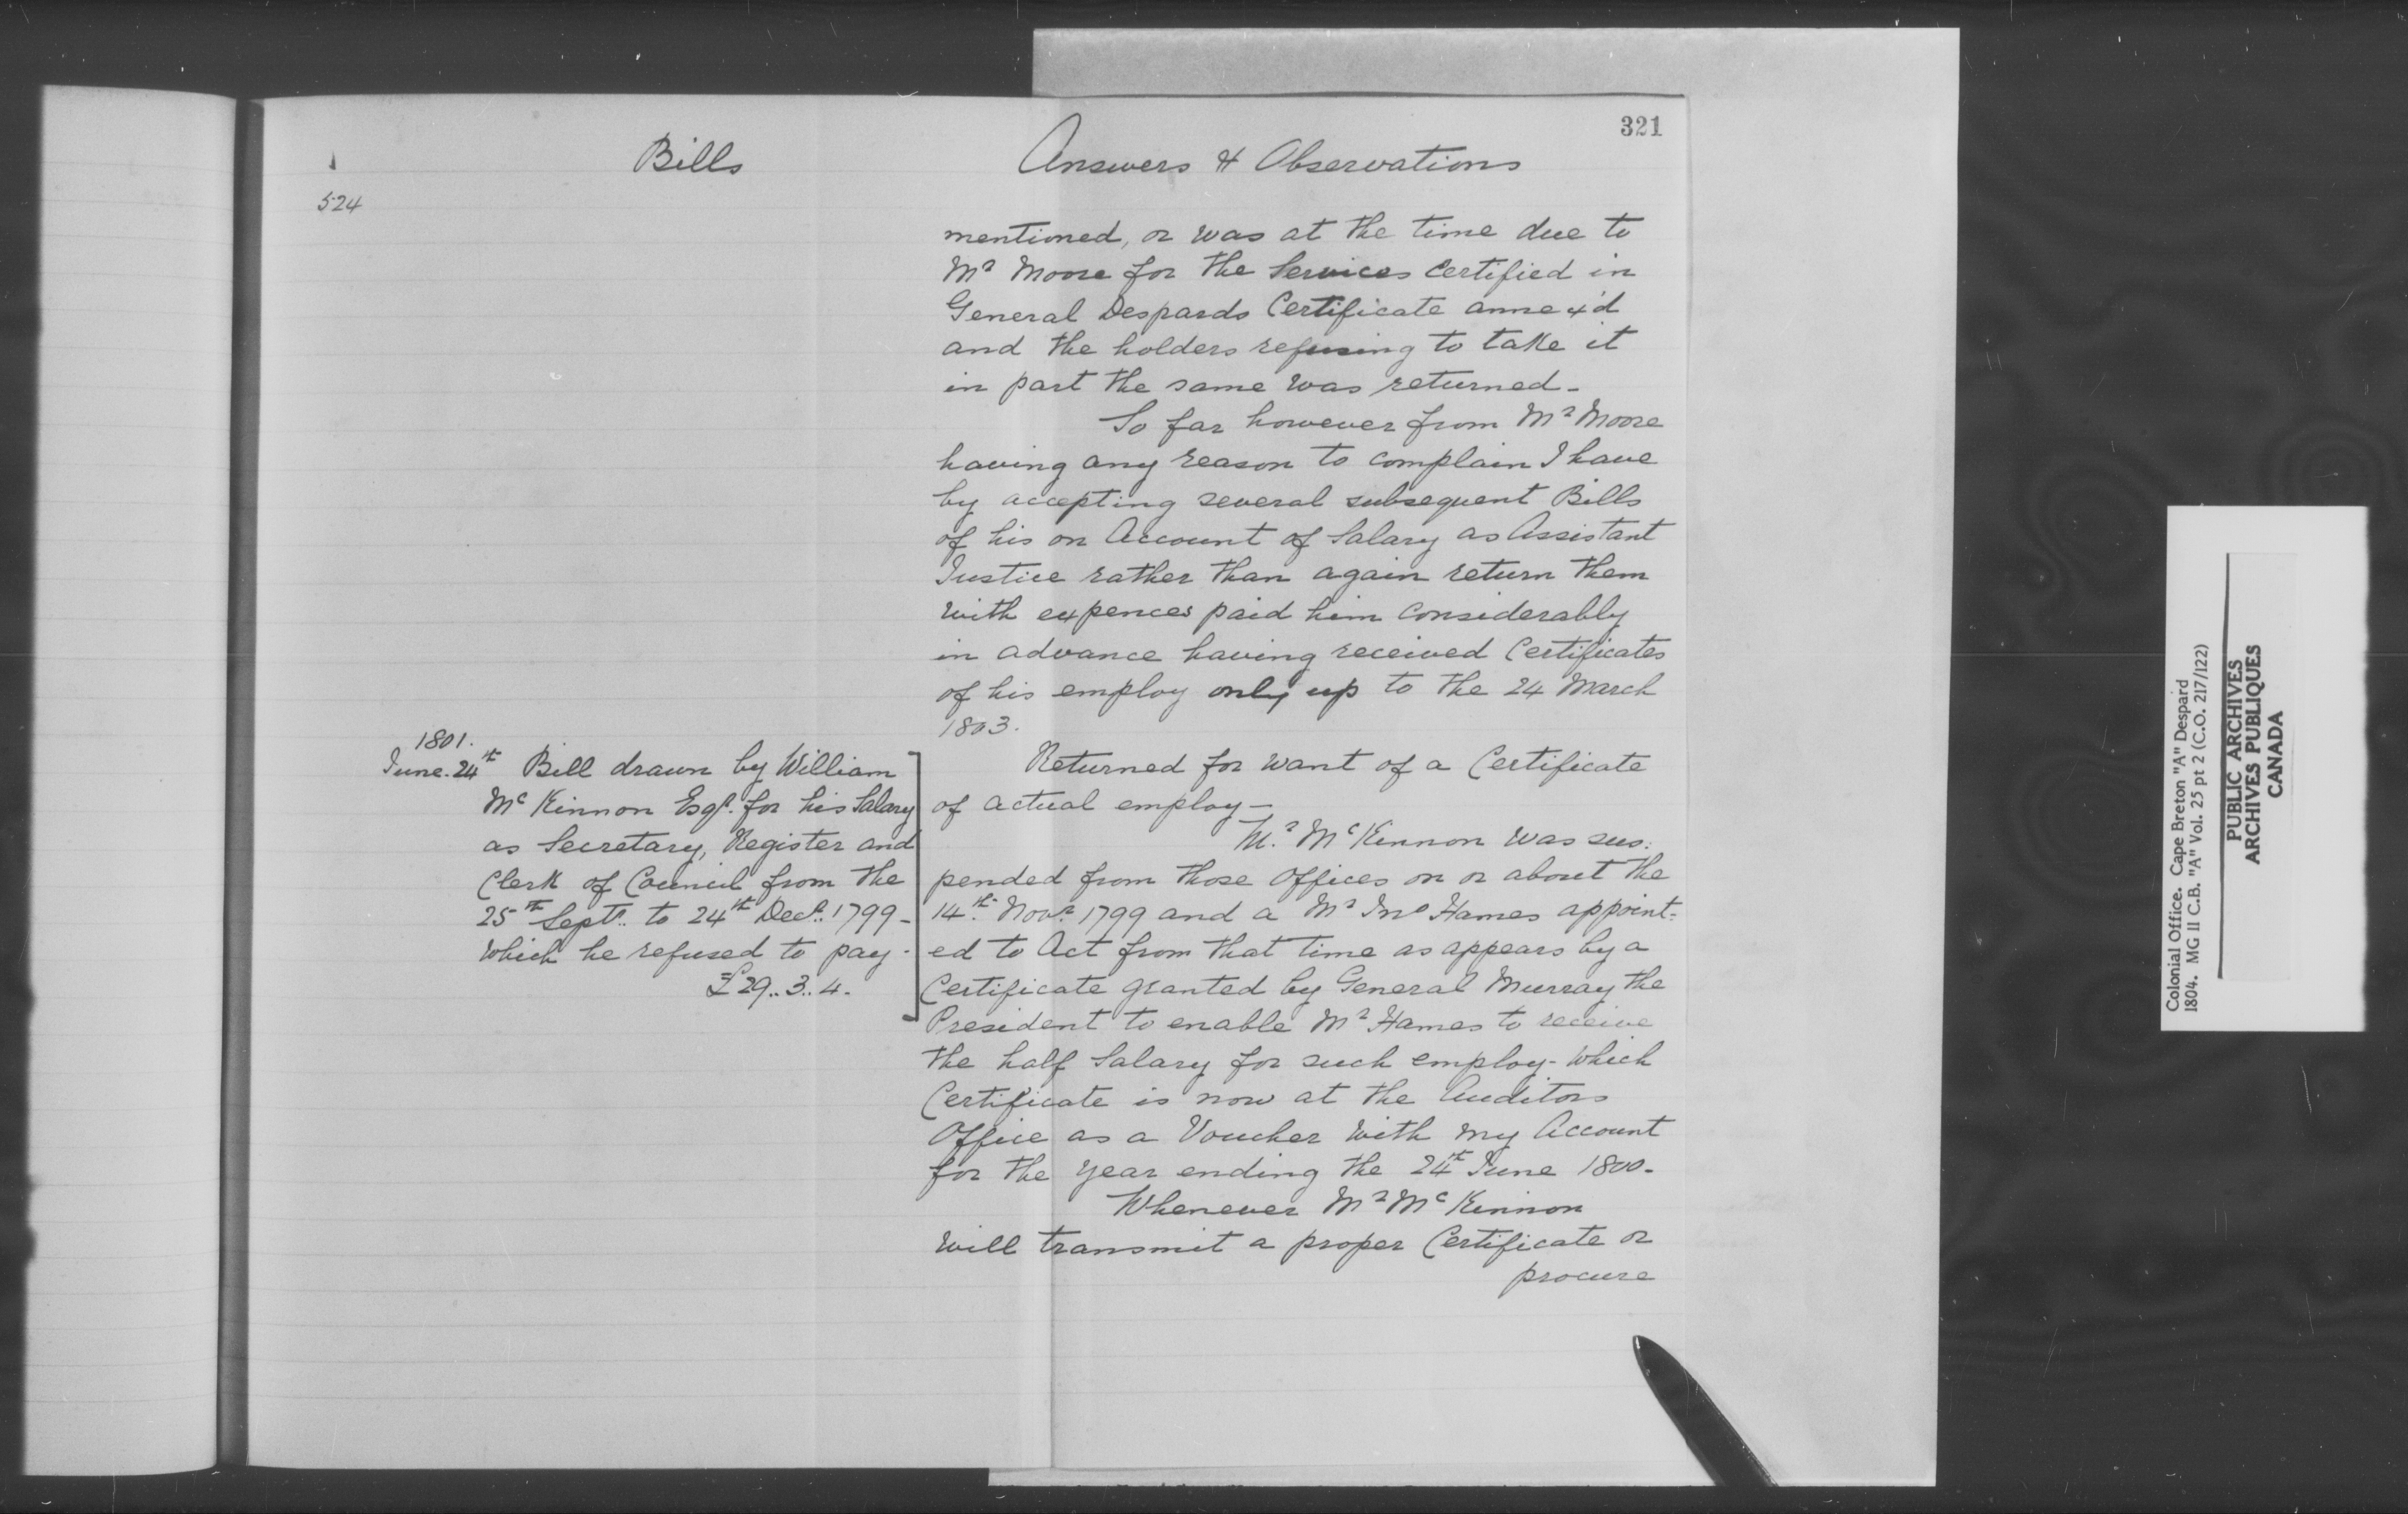 321
Bills
Answers & Observations
524
mentioned, or was at the time due to
Mr Moore for the Services certified in
General Despards Certificate annex'd
and the holders refusing to take it
in part the same was returned -
So far however from Mr Moore
having any reason to complain I have
by accepting several subsequent Bills
of his on Account of Salary as Assistant
Justice rather than again return them
with expences paid him considerably
in advance having received Certificates
of his employ only up to the 24 March
1803.
1801.
June. 24th Bill drawn by William
Mc Kinnon Esqr. for his Salary
as Secretary, Register and
Clerk of Council from the
25th Septr. to 24th Decr. 1799 -
which he refused to pay -
£29..3..4.
Returned for want of a Certificate
of actual employ -
Mr. McKinnon was sus:
pended from those Offices on or about the
14th. Novr. 1799 and a Mr Jno Hames appoint:
ed to Act from that time as appears by a
Certificate granted by General Murray the
President to enable Mr Hames to receive
the half Salary for such employ - which
Certificate is now at the Auditors
Office as a Voucher with my Account
for the year ending the 24th June 1800 -
Whenever Mr McKinnon
will transmit a proper Certificate or
procure
Colonial Office. Cape Breton "A" Despard
1804. MG 11 C.B. "A" Vol. 25 pt 2 (C.O. 217/122)
PUBLIC ARCHIVES
ARCHIVES PUBLIQUES
CANADA